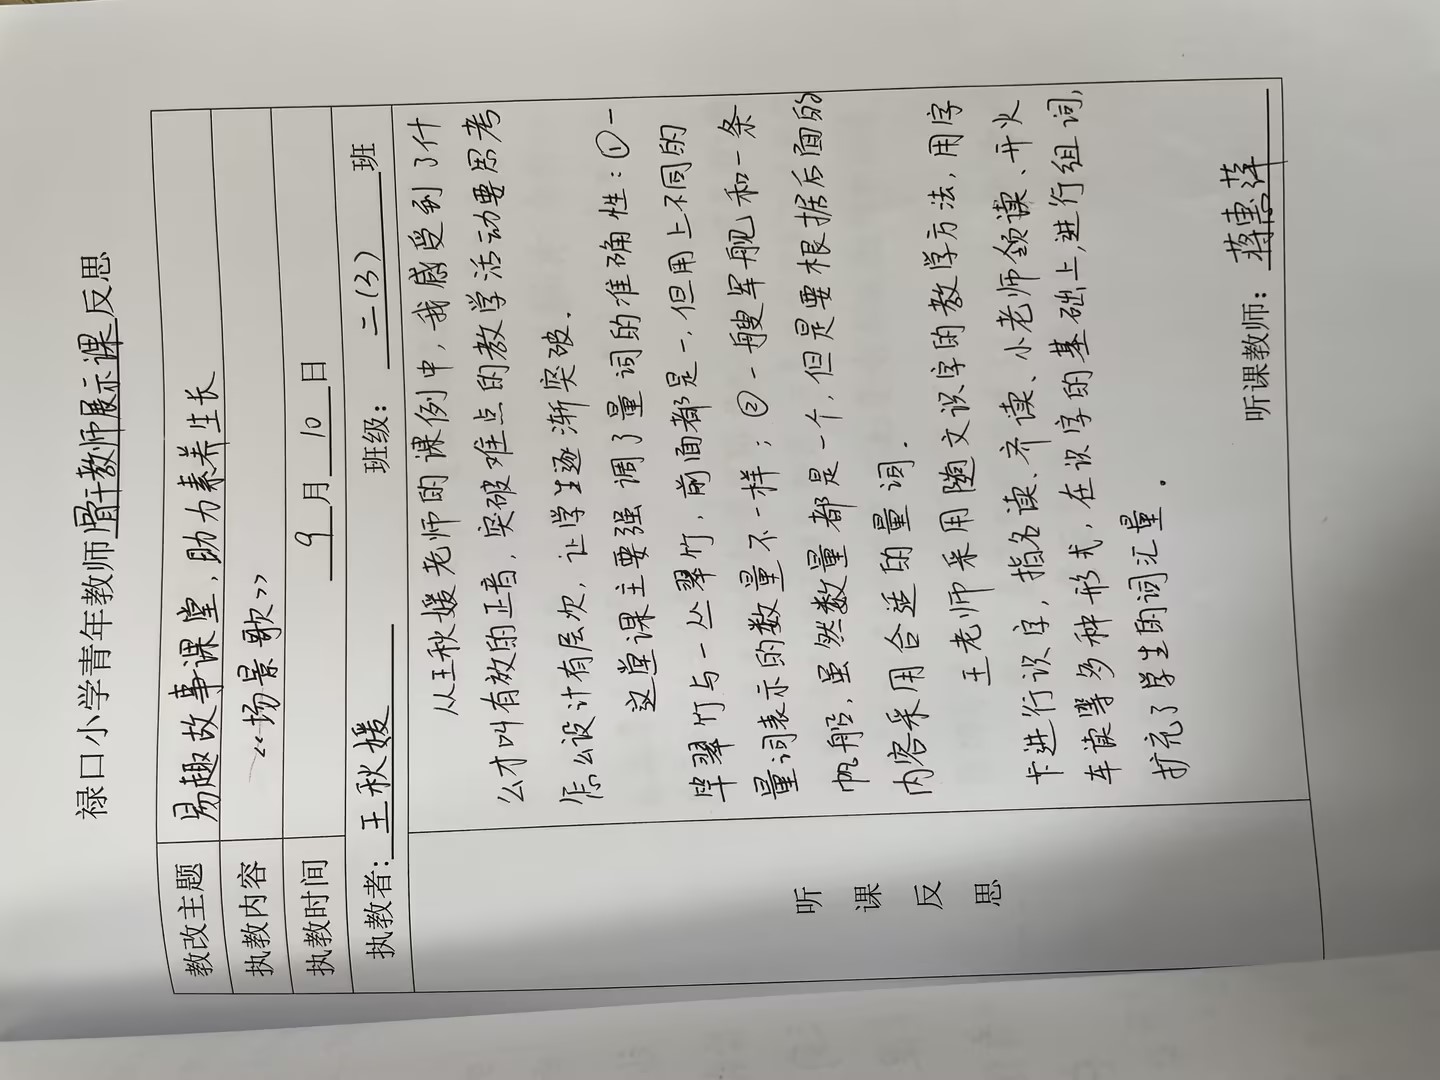 禄口小学青年教师骨干教师展示课反思
教改主题 易趣故事课堂，助力素养生长
执教内容 《场景歌》
执教时间 9月10日
执教者：王秋媛 班级：二(3)班
听课反思
从王秋媛老师的课例中，我感受到了什
么才叫有效的正音，突破难点的教学活动要思考
怎么设计有层次，让学生逐渐突破.
这堂课主要强调了量词的准确性：①一
竿翠竹与一丛翠竹，前面都是一，但用上不同的
量词表示的数量不一样；②一艘军舰和一条
帆船，虽然数量都是一个，但是要根据后面的
内容采用合适的量词.
王老师采用随文识字的教学方法，用字
卡进行识字，指名读、齐读、小老师领读、开火
车读等多种形式，在识字的基础上，进行组词，
扩充了学生的词汇量.
听课教师：蒋惠萍